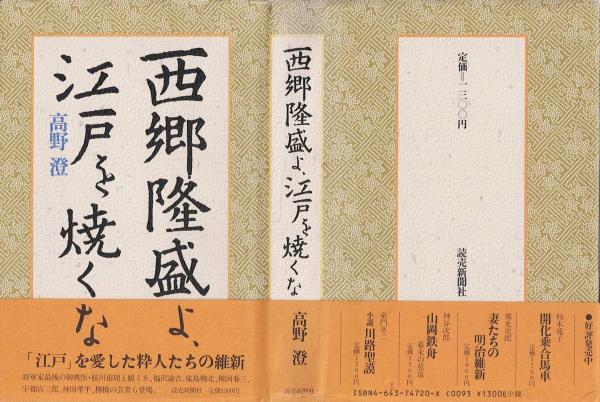 西郷隆盛よ、
江戸を焼くな
高野 澄
「江戸」を愛した粋人たちの維新
将軍家最後の御典医・桂川甫周と娘ミネ、福沢諭吉、成島柳北、柳河春三、
宇都宮三郎、神田孝平、柳橋の芸者ら登場。
読売新聞社
定価1300円
西郷隆盛よ、江戸を焼くな
高野 澄
読売新聞社
定価=一三〇〇円
読売新聞社
●好評発売中
杉本苑子
開化乗合馬車
邦光史郎
妻たちの
明治維新
神谷次郎
幕末の花道
山岡鉄舟
童門冬二
小説 川路聖謨
ISBN4-643-74720-X C0093 ¥1300E 小説